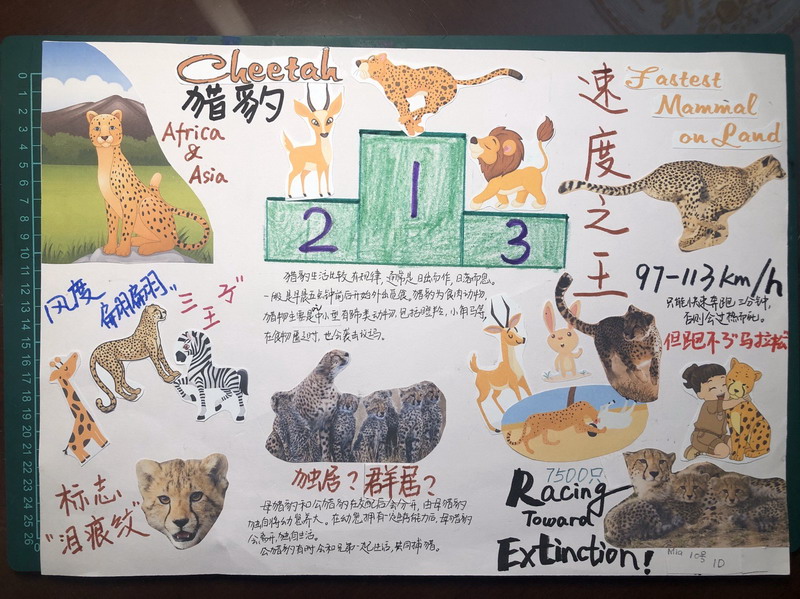 Cheetah
猎豹
Africa
&
Asia
1
2
3
速度之王
Fastest
Mammal
on Land
97-113km/h
只能快速奔跑三分钟,
否则会过热而死。
但跑不了“马拉松”
猎豹生活比较有规律,通常是日出而作,日落而息。
一般是早晨五点钟前后开始外出觅食,猎豹为食肉动物,
猎物主要是中小型有蹄类动物,包括瞪羚,小角马等,
在食物匮乏时,也会袭击斑马。
风度翩翩“三王子”
标志
“泪痕纹”
独居?群居?
母猎豹和公猎豹在交配后会分开,由母猎豹
独自将幼崽养大。在幼崽拥有捕猎能力后,母猎豹
会离开,独自生活。
公猎豹有时会和兄弟一起生活,共同捕猎。
7500只
Racing
Toward
Extinction!
Mia
1D
0
1
2
3
4
5
6
7
8
9
10
11
12
13
14
15
16
17
18
19
20
21
22
23
24
25
26